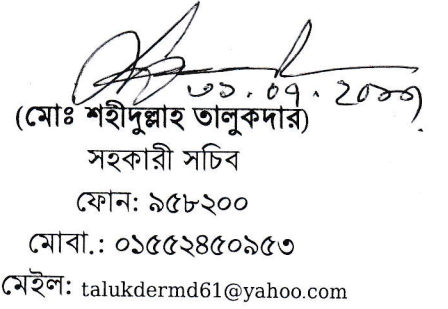 ৩১.০৭.২০১১
(মোঃ শহীদুল্লাহ তালুকদার)
সহকারী সচিব
ফোন: ৯৫৮২০০
মোবা.: ০১৫৫২৪৫০৯৫৩
মেইল: talukdermd61@yahoo.com